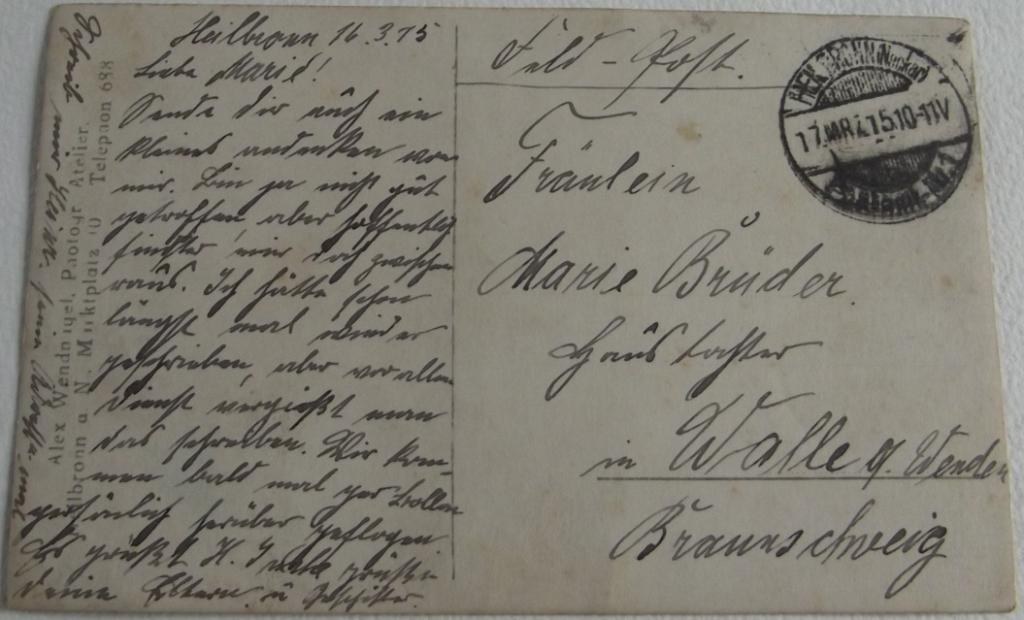 Heilbronn 16.3.15
Liebe Marie!
Sende dir auch ein
kleines andenken von
mir. Bin ja nicht gut
getroffen aber hoffentlich
findster mir doch zwischen
raus. Ich hätte schon
längst mal wieder
geschrieben, aber vor allen
Dienst vergießt man
das schreiben. Wir kom-
men bald mal per
persönlich herüber geflogen
Es grüßt H. grüße
deine Eltern u Geschister.
Alex Photogr. Atelier.
Heilbronn a N. Marktplatz 10 Telephon 688
Feld-Post.
HEILBRONN (Neckar)
17.MRZ.15.10-11V
Fräulein
Marie Brüder.
Haustochter
in Walle q. Wenden
Braunschweig